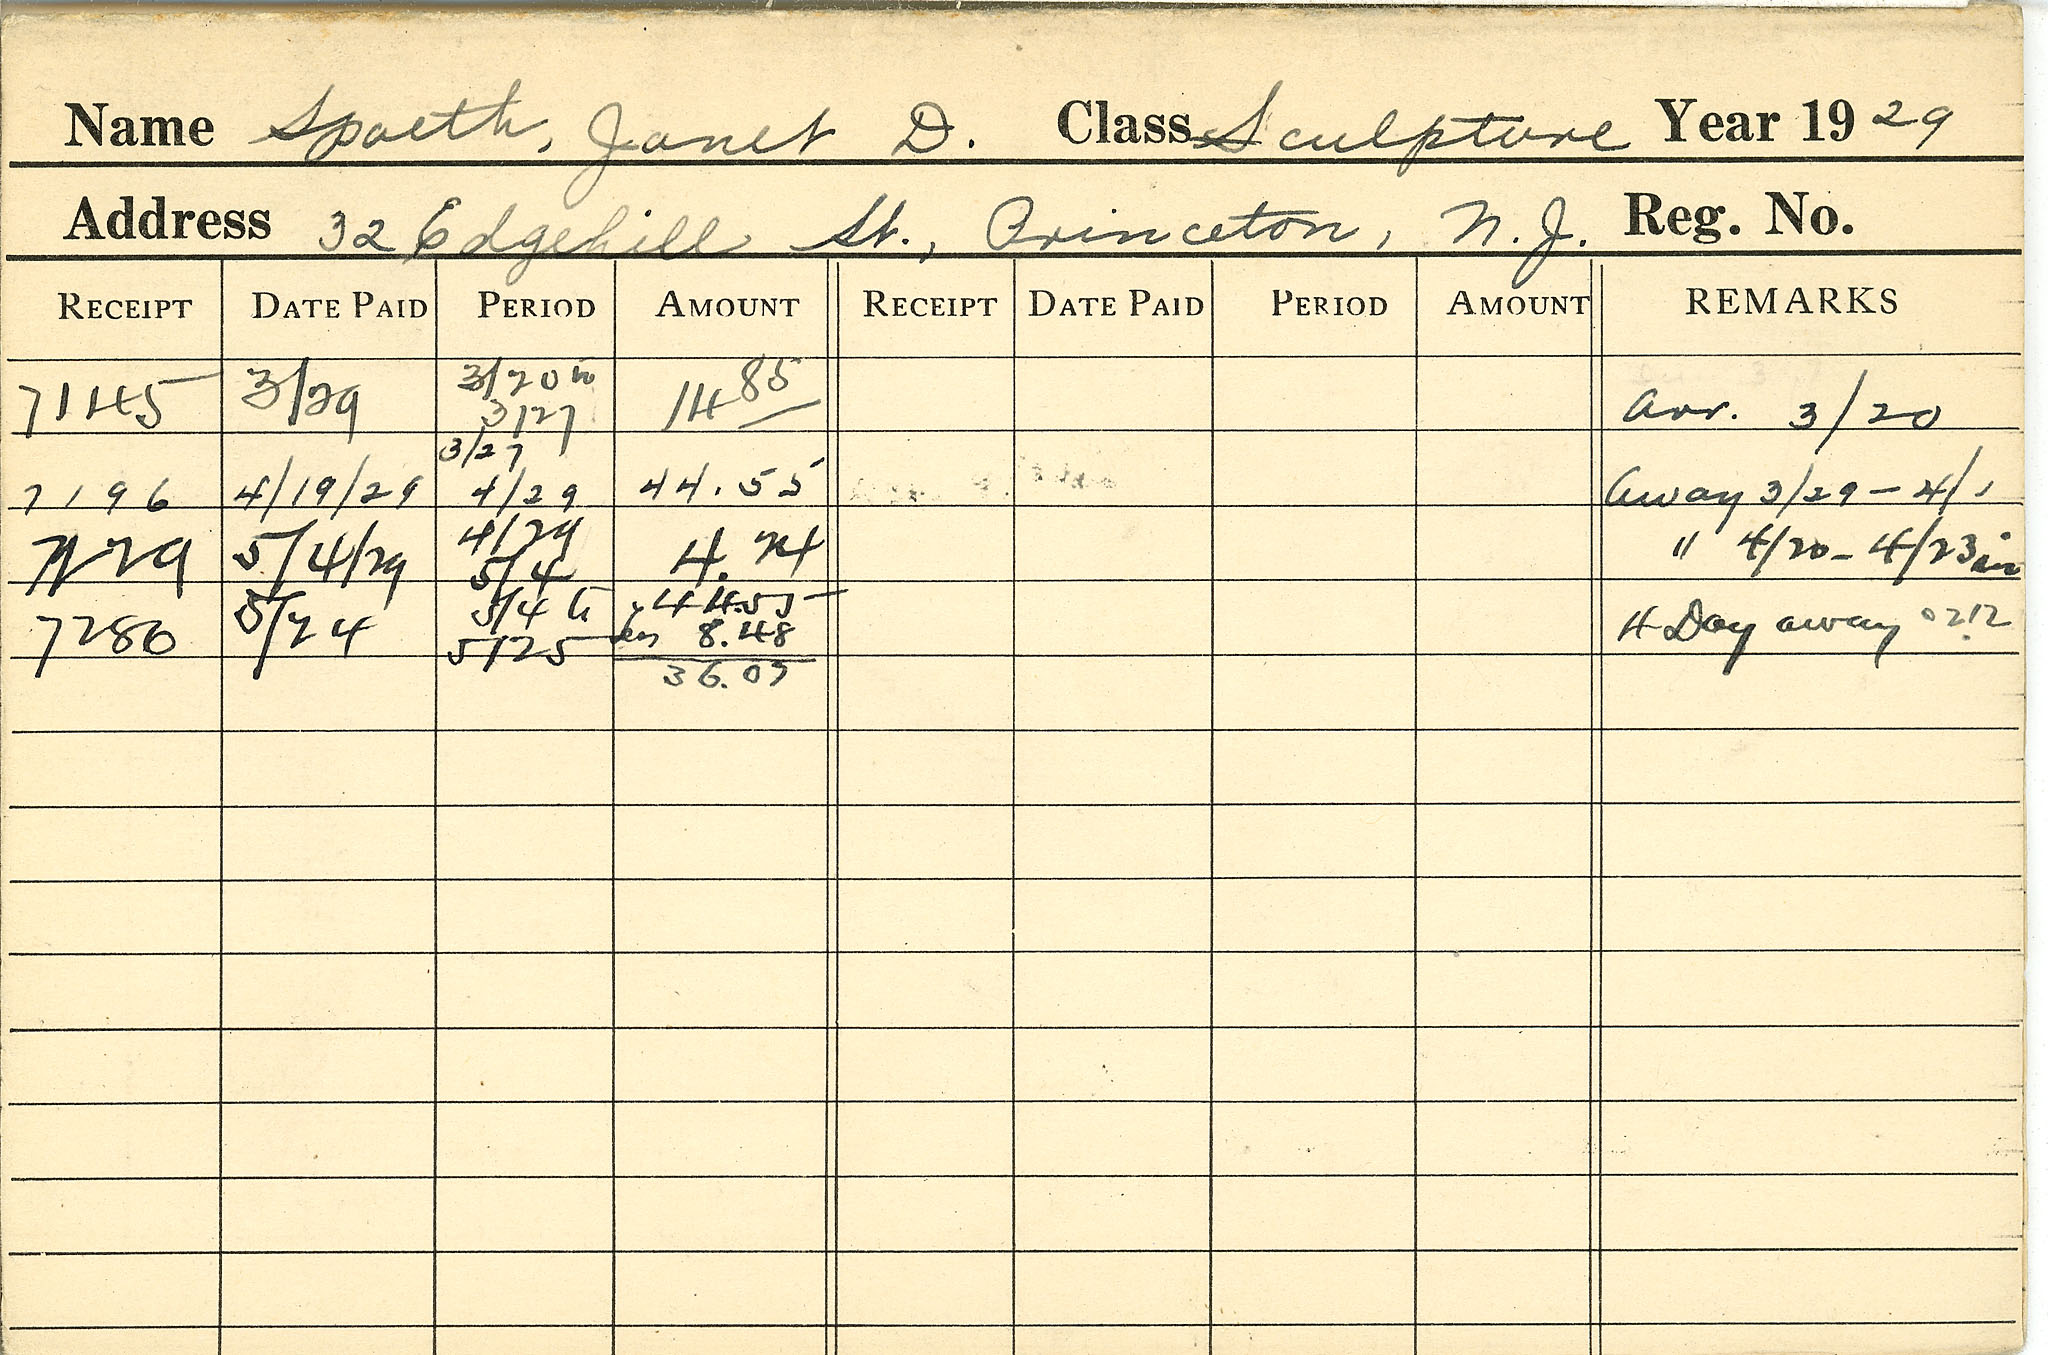 Name Spaeth, Janet D. Class Sculpture Year 1929
Address 32 Edgehill St., Princeton, N.J. Reg. No.
RECEIPT DATE PAID PERIOD AMOUNT RECEIPT DATE PAID PERIOD AMOUNT REMARKS
7145 3/29 3/20 to 14 85 Arr. 3/20
3/27
3/27
7196 4/19/29 4/29 44.55 Away 3/29 - 4/1
5/4/29 4/29 4. " 4/20 - 4/23 in
5/4
7280 5/24 5/4 to 44.55 4 Day away
5/25 8.48
36.07